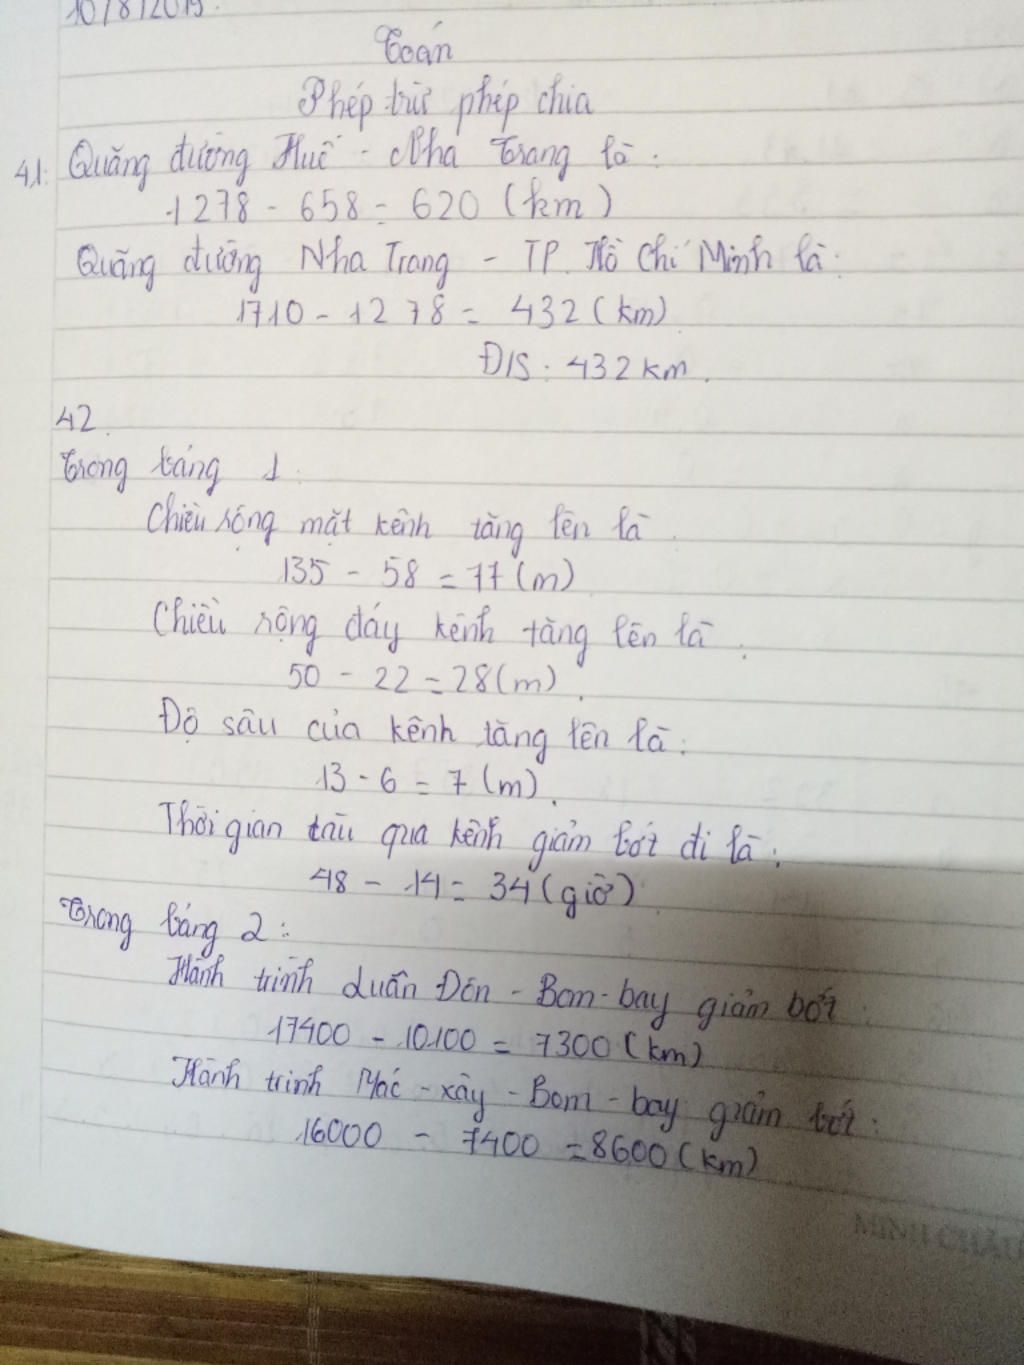 10/8/2019.
Toán
Phép trừ phép chia
41: Quãng đường Huế - Nha Trang là:
1278 - 658 = 620 (km)
Quãng đường Nha Trang - TP. Hồ Chí Minh là:
1710 - 1278 = 432 (km)
Đ/S: 432 km.
42.
Trong bảng 1:
Chiều rộng mặt kênh tăng lên là
135 - 58 = 77 (m)
Chiều rộng đáy kênh tăng lên là:
50 - 22 = 28 (m).
Độ sâu của kênh tăng lên là:
13 - 6 = 7 (m).
Thời gian tàu qua kênh giảm bớt đi là:
48 - 14 = 34 (giờ)
Trong bảng 2:
Hành trình Luân Đôn - Bom-bay giảm bớt:
17400 - 10100 = 7300 (km)
Hành trình Mác-xây - Bom-bay giảm bớt:
16000 - 7400 = 8600 (km)
MINH CHÂU